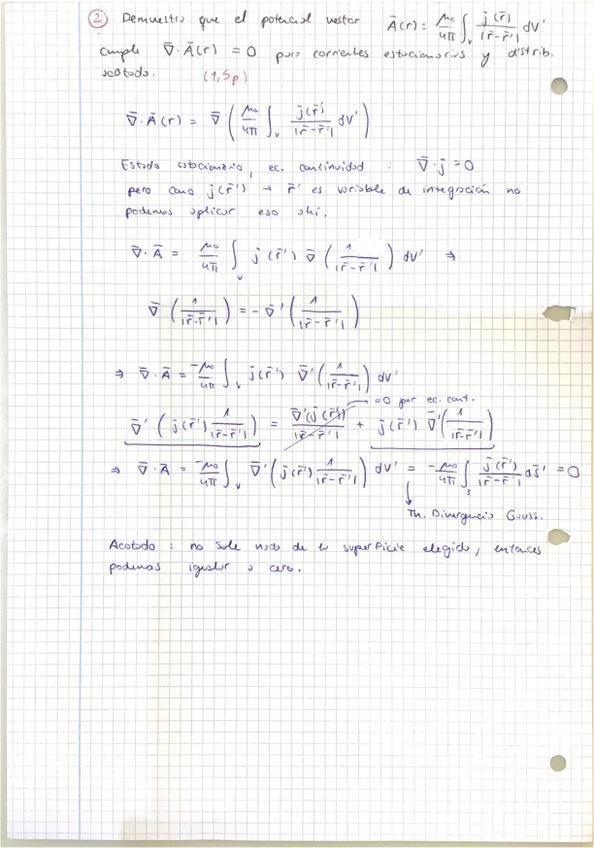 ② Demuestra que el potencial vector Ā(r) = μ₀/4π ∫ᵥ j̄(r̄')/|r̄-r̄'| dV'
cumple ∇̄·Ā(r) = 0 para corrientes estacionarias y distrib.
acotada. (1,5p)
∇̄·Ā(r) = ∇̄ (μ₀/4π ∫ᵥ j̄(r̄')/|r̄-r̄'| dV')
Estado estacionario, ec. continuidad : ∇̄·j̄ = 0
pero como j̄(r̄') → r̄' es variable de integración no
podemos aplicar eso ahí.
∇̄·Ā = μ₀/4π ∫ᵥ j̄(r̄') ∇̄ (1/|r̄-r̄'|) dV' ⇒
∇̄ (1/|r̄-r̄'|) = -∇̄' (1/|r̄-r̄'|)
⇒ ∇̄·Ā = -μ₀/4π ∫ᵥ j̄(r̄') ∇̄' (1/|r̄-r̄'|) dV'
=0 por ec. cont.
∇̄' (j̄(r̄') 1/|r̄-r̄'|) = ∇̄'(j̄(r̄'))/|r̄-r̄'| + j̄(r̄') ∇̄' (1/|r̄-r̄'|)
⇒ ∇̄·Ā = -μ₀/4π ∫ᵥ ∇̄' (j̄(r̄') 1/|r̄-r̄'|) dV' = -μ₀/4π ∫ₛ j̄(r̄')/|r̄-r̄'| ds̄' = 0
Th. Divergencia Gauss.
Acotada : no sale nada de la superficie elegida, entonces
podemos igualar a cero.